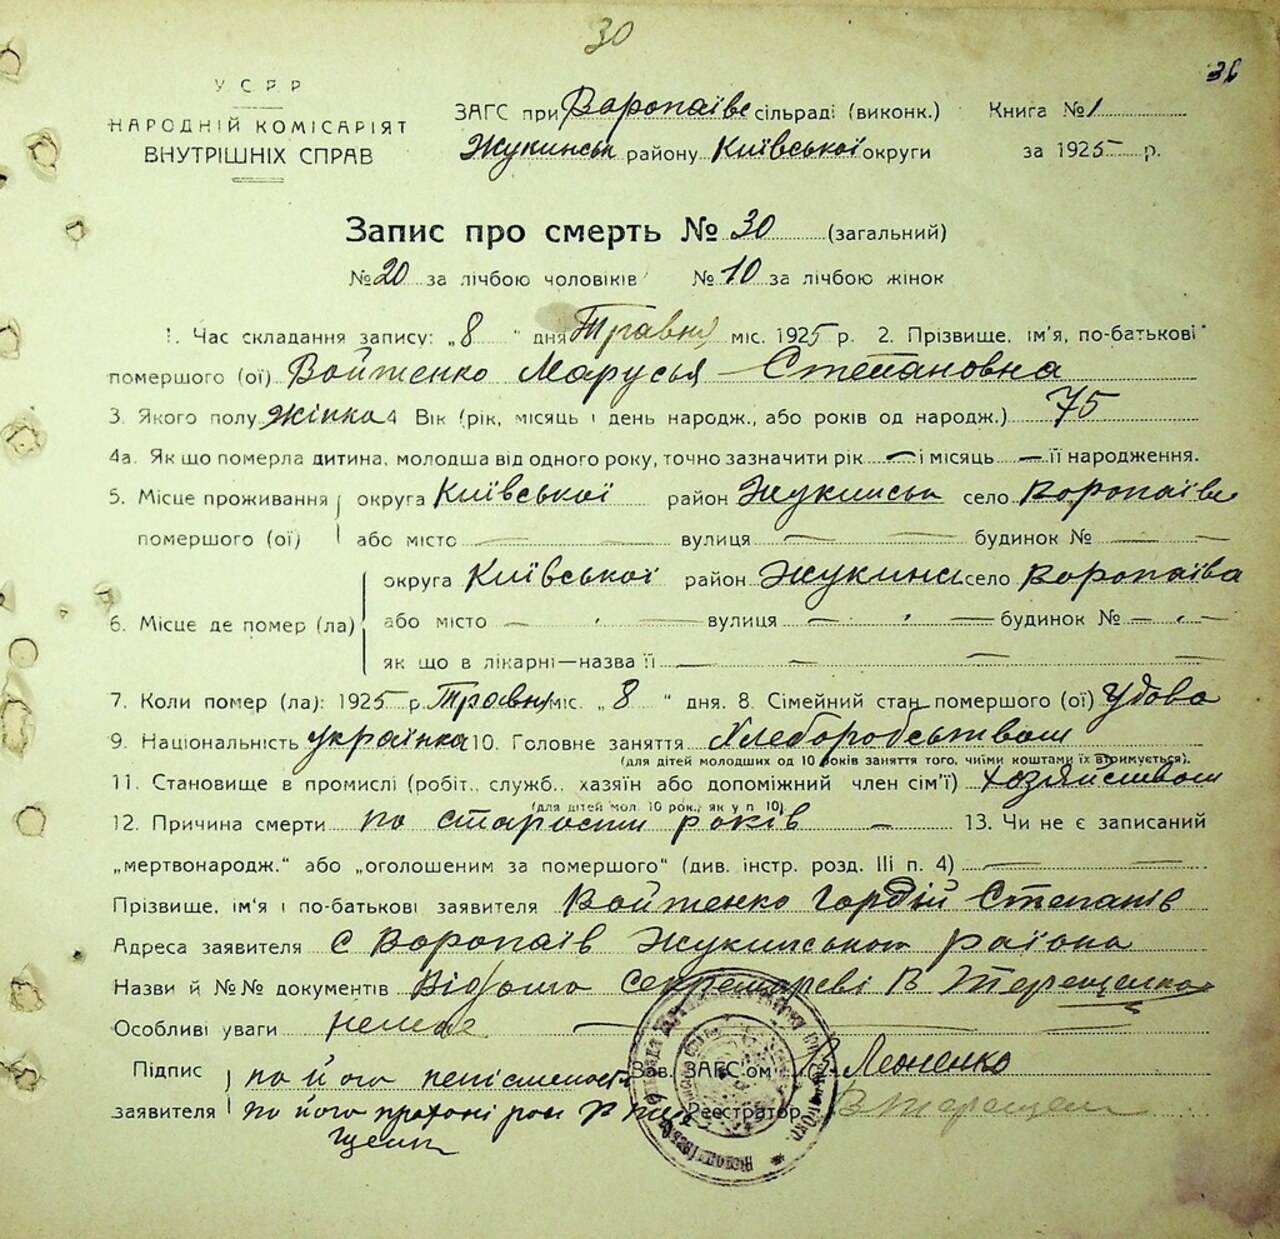 30
36
У С Р Р
НАРОДНІЙ КОМІСАРІЯТ
ВНУТРІШНІХ СПРАВ
ЗАГС при Воропаїве сільраді (виконк.)
Жукинськ району Київської округи
Книга № 1
за 1925 р.
Запис про смерть № 30 (загальний)
№ 20 за лічбою чоловіків № 10 за лічбою жінок
1. Час складання запису: „8" дня Травня міс. 1925 р. 2. Прізвище, ім'я, по-батькові
помершого (ої) Войтенко Марусья Степановна
3. Якого полу жінка 4 Вік (рік, місяць і день народж., або років од народж.) 75
4а. Як що померла дитина, молодша від одного року, точно зазначити рік — і місяць — її народження.
5. Місце проживання округа Київської район Жукинськ село Воропаїве
помершого (ої) або місто — вулиця — будинок № —
округа Київської район Жукинськ село Воропаїва
6. Місце де помер (ла) або місто — вулиця — будинок № —
як що в лікарні—назва її —
7. Коли помер (ла): 1925 р. Травня міс. „8" дня. 8. Сімейний стан помершого (ої) удова
9. Національність українка 10. Головне заняття Хлеборобством
(для дітей молодших од 10 років заняття того, чиїми коштами їх втримується).
11. Становище в промислі (робіт., служб., хазяїн або допоміжний член сім'ї) хозяйством
(для дітей мол. 10 рок., як у п 10).
12. Причина смерти по старости років — 13. Чи не є записаний
„мертвонародж." або „оголошеним за помершого" (див. інстр. розд. III п. 4) —
Прізвище, ім'я і по-батькові заявителя Войтенко Гордій Степанів
Адреса заявителя с Воропаїв Жукинського района
Назви й №№ документів Відомо Секретареві В Терещенко
Особливі уваги немае —
Підпис по його неписьмености Зав. ЗАГС'ом В. Леоненко
заявителя по його Реєстратор В Терещен